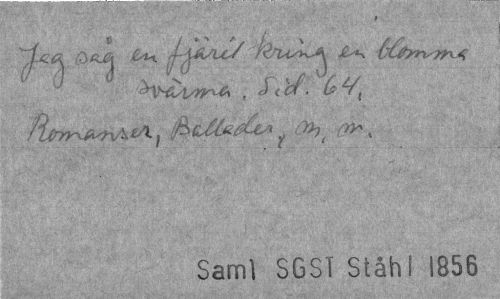 Jag såg en fjäril kring en blomma
svärma. Sid. 64.
Romanser, Ballader, m. m.
Saml SGST Ståhl 1856